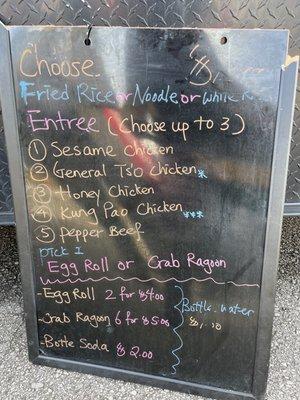 Choose
Fried Rice or Noodle or White
Entree (Choose up to 3)
① Sesame Chicken
② General Tso Chicken *
③ Honey Chicken
④ Kung Pao Chicken ***
⑤ Pepper Beef
Pick 1
Egg Roll or Crab Ragoon
- Egg Roll 2 for $4.00
- Crab Ragoon 6 for $5.00
- Botte Soda $2.00
Bottle water